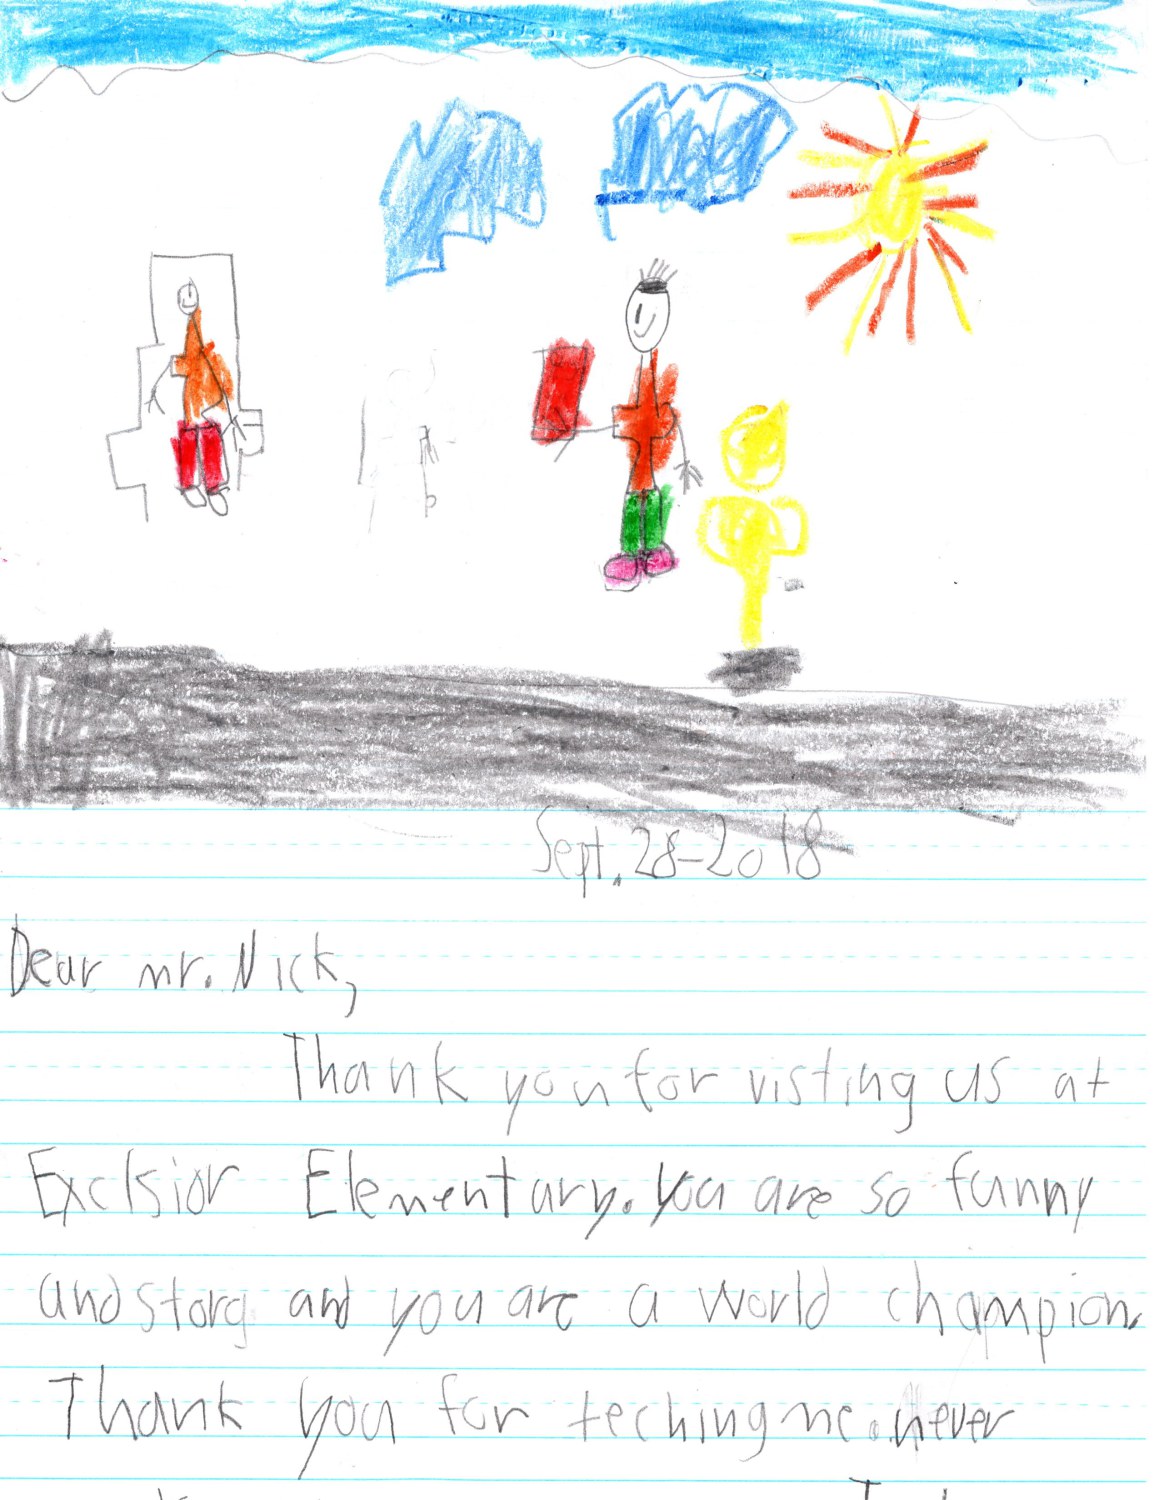 Sept. 28-2018
Dear mr. Nick,
Thank you for visting us at
Exclsior Elementary. you are so funny
and storg and you are a world champion.
Thank you for teching me. never